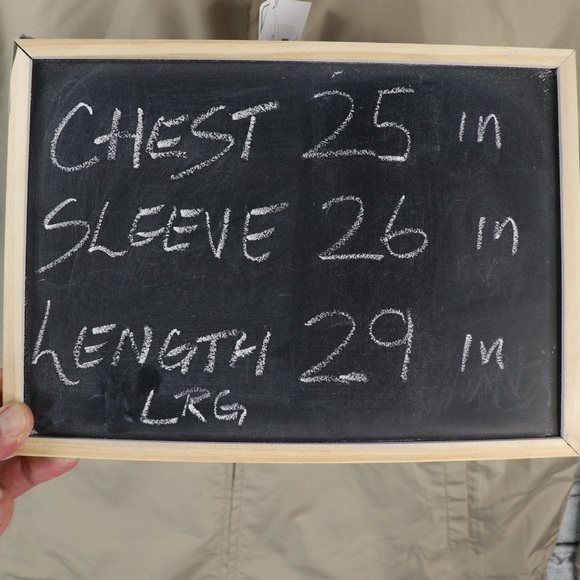 CHEST 25 in
SLEEVE 26 in
LENGTH 29 in
LRG